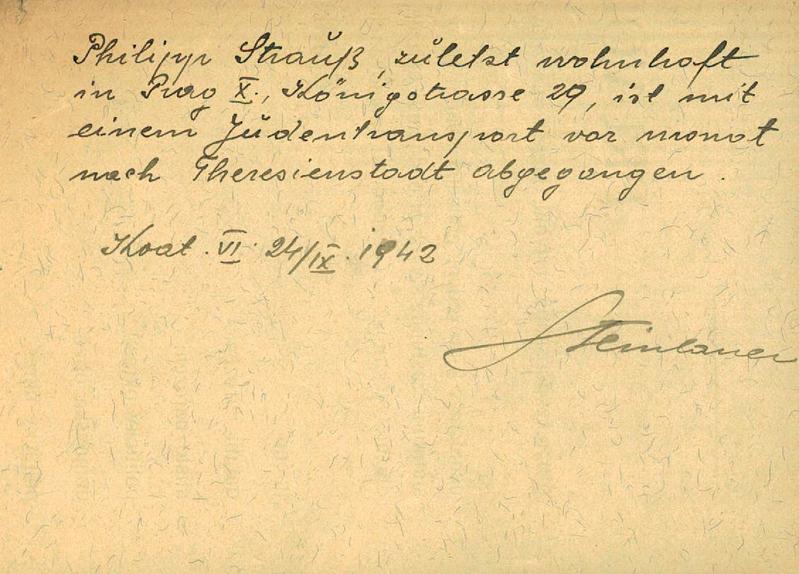 Philipp Strauß, zuletzt wohnhaft
in Prag X., Königstrasse 29, ist mit
einem Judentransport vor monat
nach Theresienstadt abgegangen.
Koat. VI. 24/IX. 1942